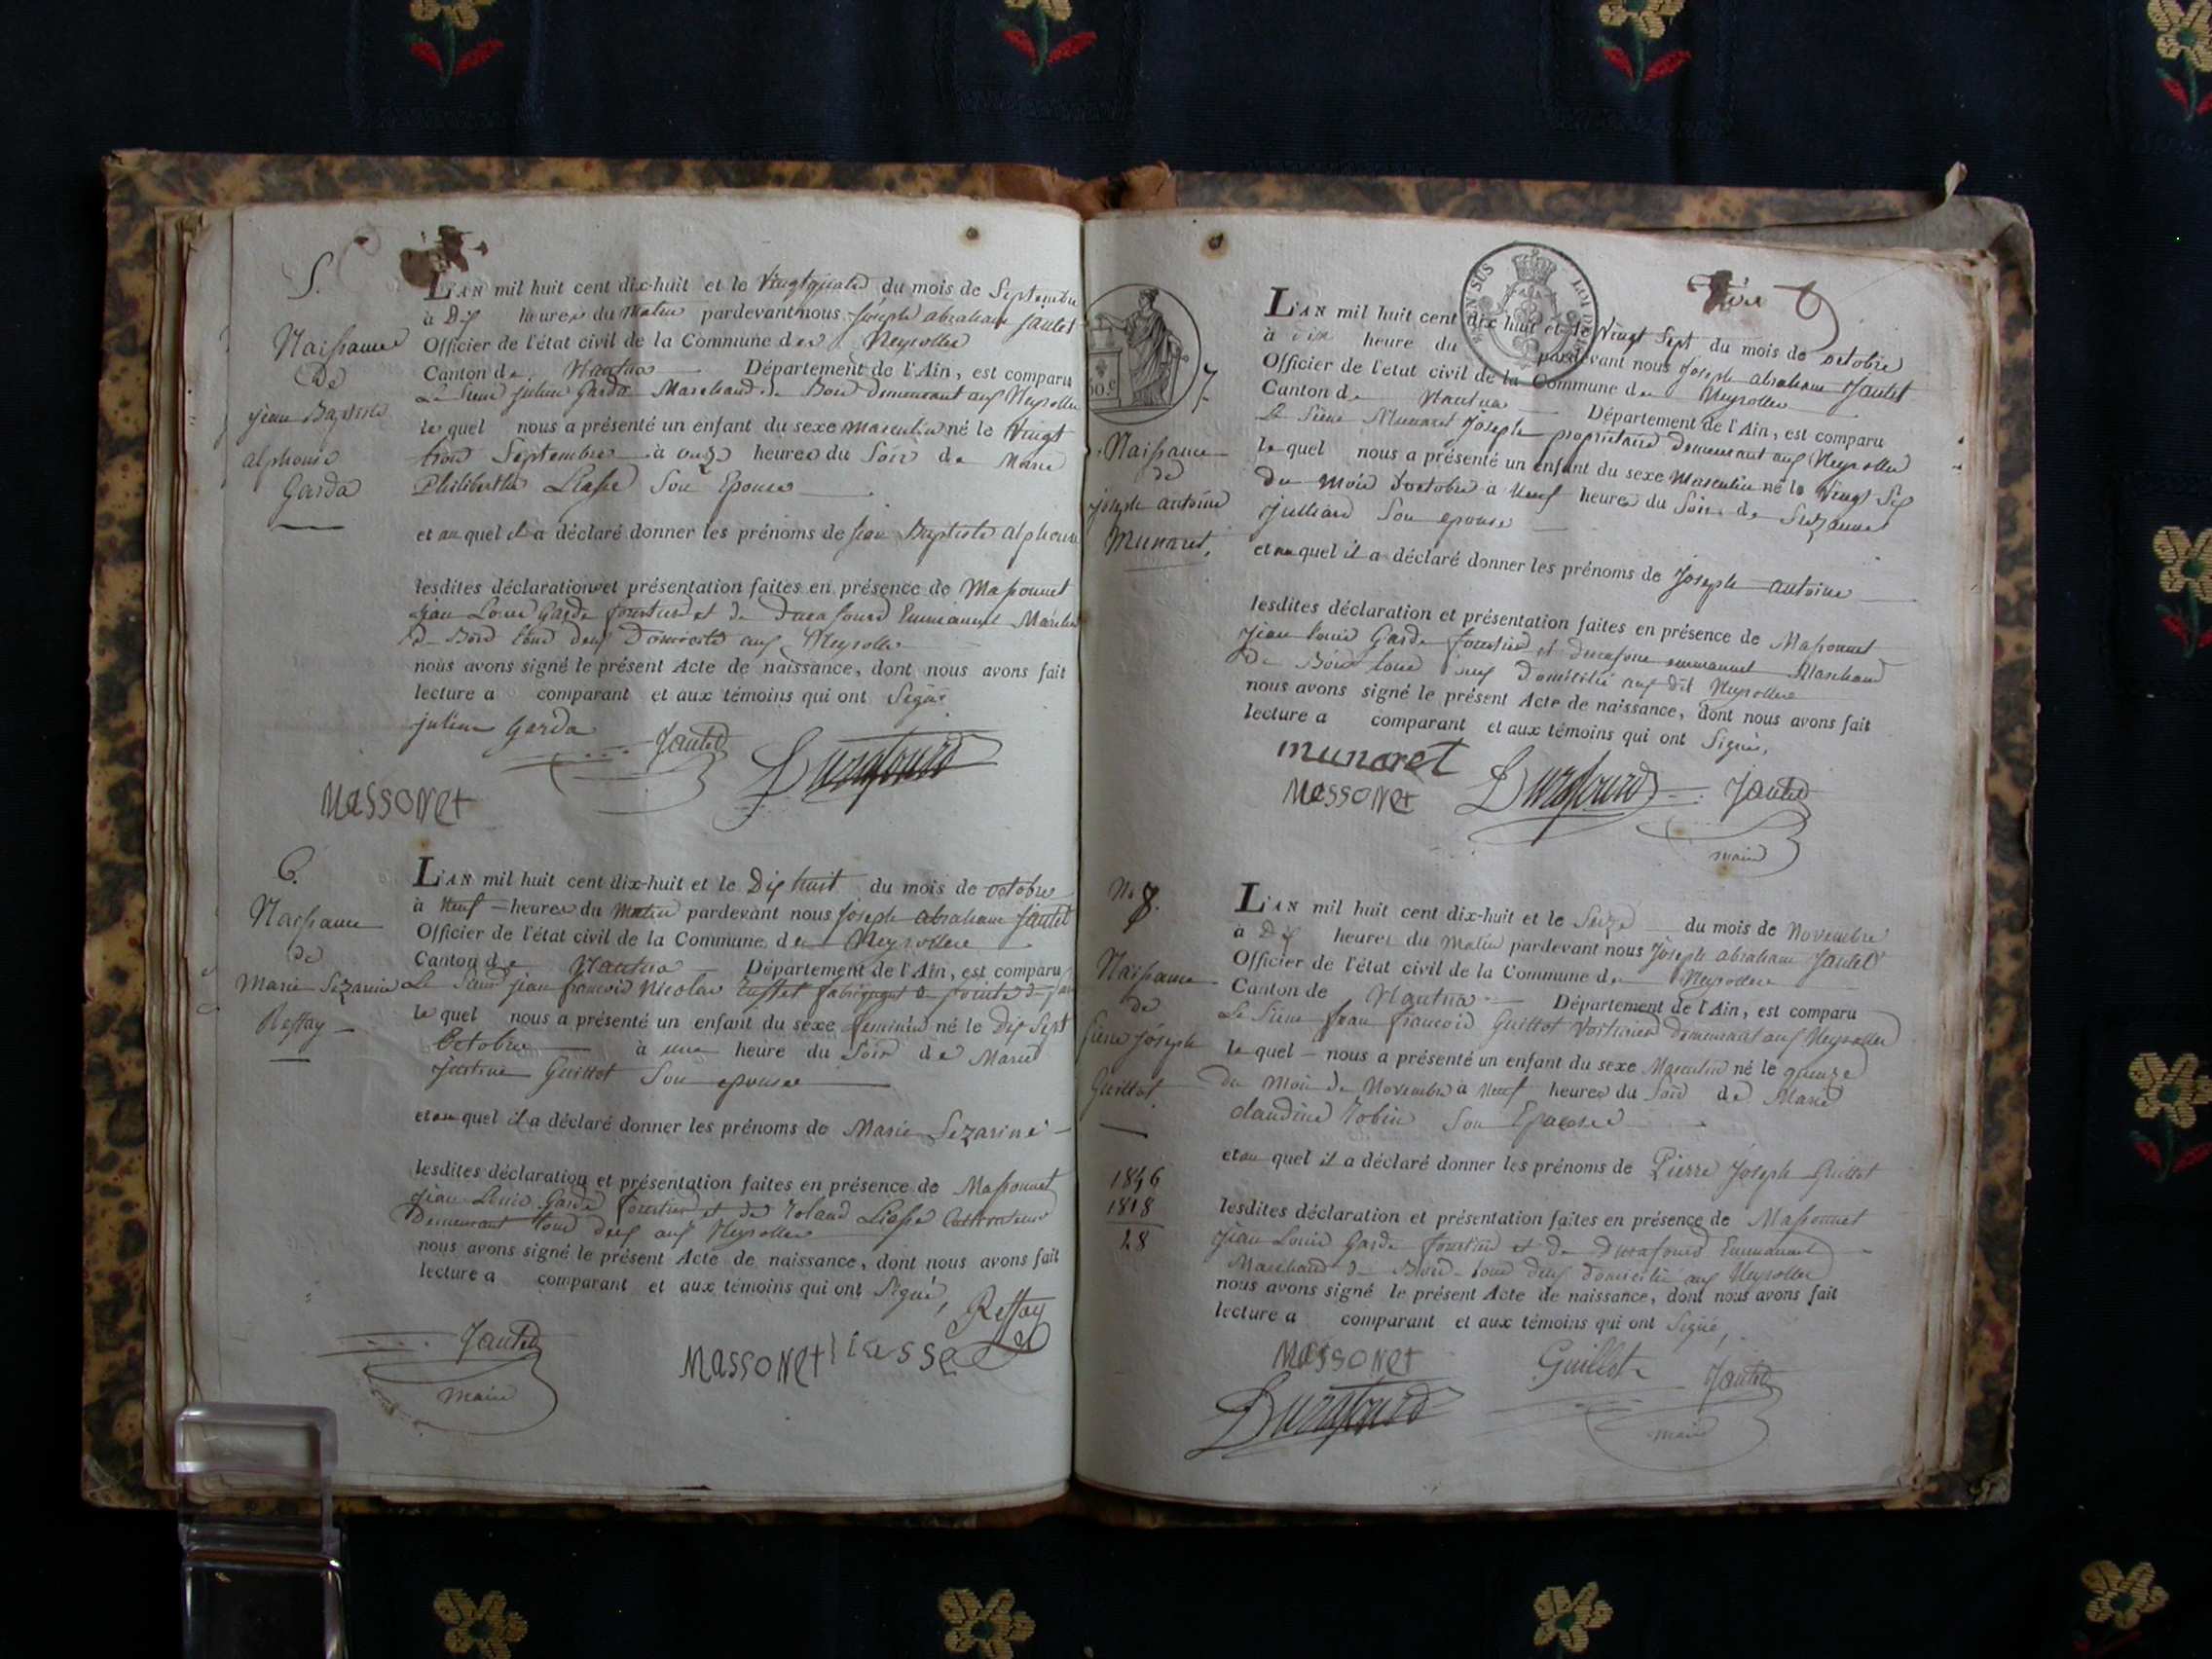 5.
Naissance
De
jean Baptiste
alphonse
Garda
L'AN mil huit cent dix-huit et le Vingtquatre du mois de Septembre
à Dix heures du Matin pardevant nous joseph abraham jantet
Officier de l'état civil de la Commune des Neyrolles
Canton de Nantua Département de l'Ain, est comparu
Le Sieur julien Garda Marchand de Bois demeurant aux Neyrolles
lequel nous a présenté un enfant du sexe masculin né le Vingt
trois Septembre à onze heures du Soir de Marie
Philiberthe Liasse Son Epouse
et auquel il a déclaré donner les prénoms de jean Baptiste alphonse
lesdites déclaration et présentation faites en présence de Massonnet
jean Louis Garde forestier et de Durafourd Emmanuel March
de Bois tous deux Domicilié aux Neyrolles
nous avons signé le présent Acte de naissance, dont nous avons fait
lecture a comparant et aux témoins qui ont Signé
julien garda
jantet Durafourd
Massonet
6.
Naissance
de
Marie Sezarine
Reffay
L'AN mil huit cent dix-huit et le Dix huit du mois de octobre
à Neuf heures du Matin pardevant nous joseph abraham jantet
Officier de l'état civil de la Commune des Neyrolles
Canton de Nantua Département de l'Ain, est comparu
Le Sieur jean francois Nicolas fabriquant de pointe de
lequel nous a présenté un enfant du sexe feminin né le Dix Sept
Octobre à une heure du Soir de Marie
justine Guillot Son epouse
et auquel il a déclaré donner les prénoms de Marie Sezarine
lesdites déclaration et présentation faites en présence de Massonnet
jean Louis Garde forestier et de Roland Liasse Cultivateur
Demeurant tous deux aux Neyrolles
nous avons signé le présent Acte de naissance, dont nous avons fait
lecture a comparant et aux témoins qui ont Signé,
Reffay
jantet
Massonet liasse
maire
7
Naissance
de
joseph antoine
Munaret,
L'AN mil huit cent dix huit et le Vingt Sept du mois de octobre
à dix heure du pardevant nous joseph abraham jantet
Officier de l'état civil de la Commune des Neyrolles
Canton de Nantua Département de l'Ain, est comparu
Le Sieur Munaret joseph propriétaire demeurant aux Neyrolles
lequel nous a présenté un enfant du sexe Masculin né le Vingt Six
du mois d'octobre à Neuf heures du Soir de Suzanne
julliard Son epouse
et auquel il a déclaré donner les prénoms de joseph antoine
lesdites déclaration et présentation faites en présence de Massonnet
jean louis Garde forestier et durafour emmanuel Marchand
de Bois tous deux Domicilié aux dit Neyrolles
nous avons signé le présent Acte de naissance, dont nous avons fait
lecture a comparant et aux témoins qui ont Signé,
munaret
Massonet Durafourd jantet
maire
No 8.
Naissance
de
Pierre joseph
Guillot.
1846
1818
28
L'AN mil huit cent dix-huit et le Seize du mois de Novembre
à Dix heures du Matin pardevant nous joseph abraham jantet
Officier de l'état civil de la Commune des Neyrolles
Canton de Nantua Département de l'Ain, est comparu
Le Sieur jean francois Guillot Voiturier demeurant aux Neyrolles
lequel nous a présenté un enfant du sexe Masculin né le quinze
du Mois de Novembre à Neuf heures du Soir de Marie
claudine Robin Son Epouse
et auquel il a déclaré donner les prénoms de Pierre joseph Guillot
lesdites déclaration et présentation faites en présence de Massonnet
jean Louis Garde forestier et de Durafourd Emmanuel
Marchand de Bois tous deux domicilié aux Neyrolles
nous avons signé le présent Acte de naissance, dont nous avons fait
lecture a comparant et aux témoins qui ont Signé,
Massonet Guillot jantet
Durafourd maire